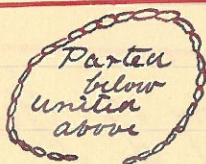 Parted
below
united
above